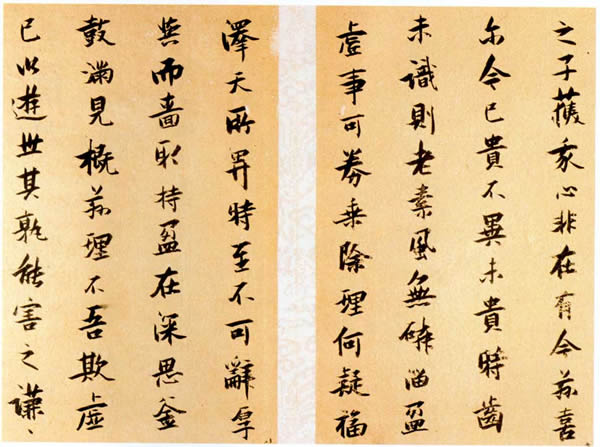 之子獲我心非在有今茲喜
尓今已貴不異未貴時齒
未識則老素風無磷淄盈
虛事可券乘除理何疑福
澤天所畀時至不可辭厚
與而嗇取持盈在深思釜
鼓滿見概茲理不吾欺虛
已以遊世其孰能害之謙〻